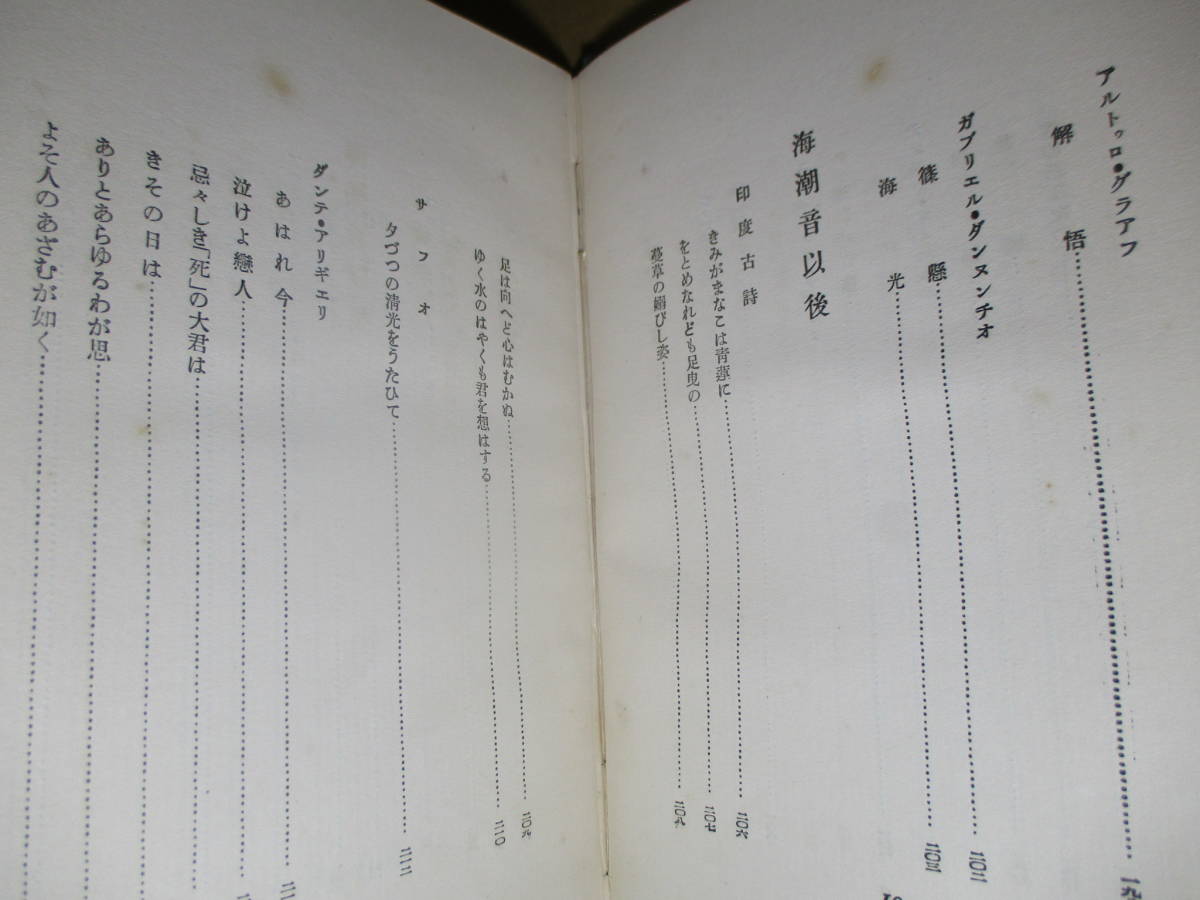 アルトゥロ・グラアフ
解悟……一九
ガブリエル・ダンヌンチオ
篠懸……二〇二
海光……二〇三
海潮音以後
印度古詩
きみがまなこは青蓮に……二〇六
をとめなれども足曳の……二〇七
蔓草の びし姿……二〇八
足は向へど心はむかぬ……二〇九
ゆく水のはやくも君を想はする……二一〇
サフオ
夕づつの清光をうたひて……二一二
ダンテ・アリギエリ
あはれ今……二一
泣けよ戀人……
忌々しき「死」の大君は……
きその日は……
ありとあらゆるわが思……
よそ人のあざむが如く……